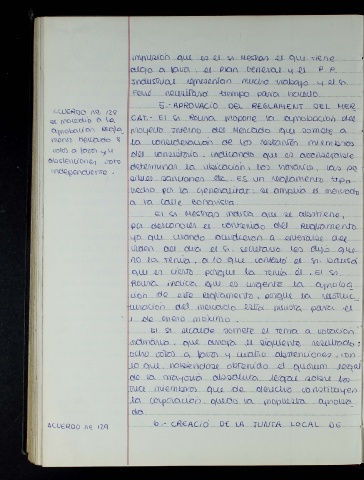 impresión que es el Sr. Mestras el que tiene
algo a favor, el Plan General y el P.P.
Industrial representan mucho trabajo y el Sr.
Font necesitará tiempo para hacerlo.
5.- APROVACIÓ DEL REGLAMENT DEL MER
CAT.- El Sr. Roura propone la aprobación del
proyecto interno del Mercado que somete a
la consideración de los restantes miembros
del consistorio, indicando que es aconsejable
determinar la ubicación, los horarios, las po
sibles sanciones etc. Es un reglamento tipo,
hecho por la Generalitat, se amplía el mercado
a la calle Bonavista.
El Sr. Mestras indica que se abstiene,
por desconocer el contenido del Reglamento
ya que cuando acudieron a enterarse del
orden del día el Sr. Secretario les dijo que
no la tenía, a lo que contestó el Sr.
que es cierto porque la tenía él. El Sr.
Roura indica que es urgente la aproba
ción de este Reglamento, porque la restruc
turación del mercado está prevista para el
1 de enero próximo.
El Sr. Alcalde somete el tema a votación
ordinaria, que arroja el siguiente resultado:
ocho votos a favor y cuatro abstenciones, con
lo que habiéndose obtenido el quorum legal
de la mayoría absoluta legal sobre los
trece miembros que de derecho constituyen
la corporación queda la propuesta aproba
da.
6.- CREACIÓ DE LA JUNTA LOCAL DE
ACUERDO Nº 128
se procedió a la
aprobación Regla
mento Mercado 8
votos a favor y 4
abstenciones voto
independiente.
ACUERDO Nº 129